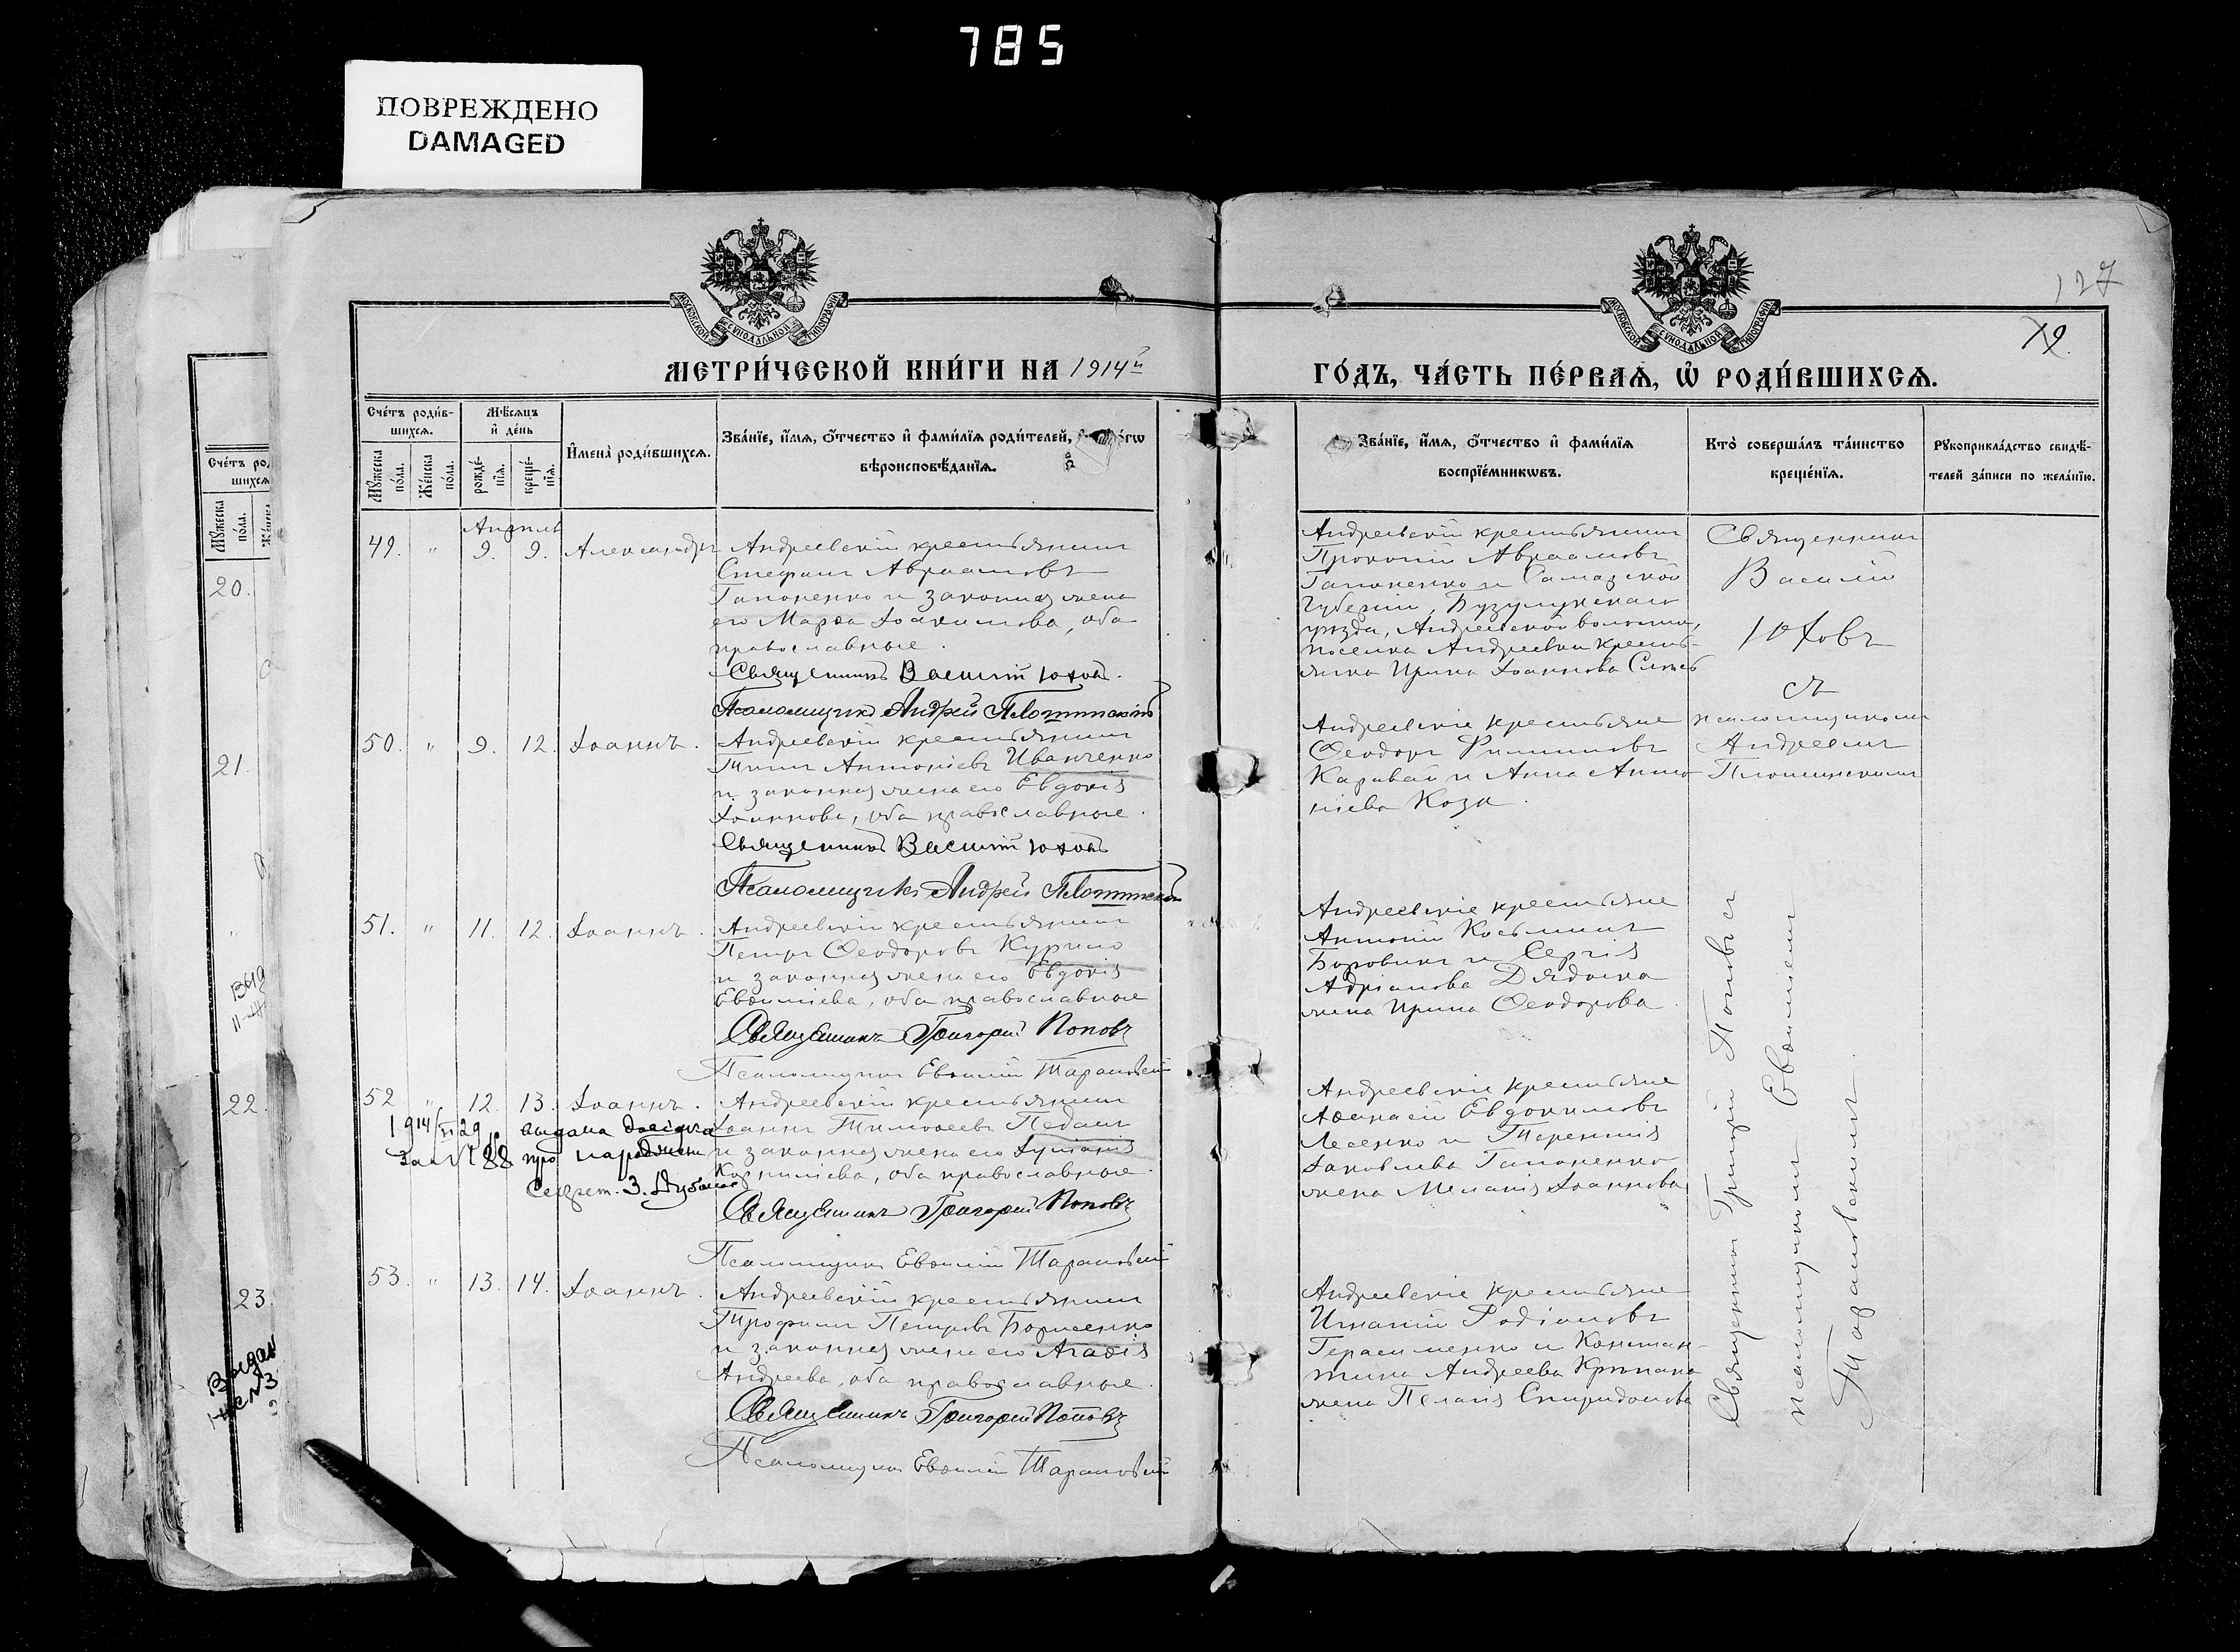 785
ПОВРЕЖДЕНО
DAMAGED
МОСКОВСКОЙ СѴНОДАЛЬНОЙ ТИПОГРАФІИ
МОСКОВСКОЙ СѴНОДАЛЬНОЙ ТИПОГРАФІИ
127
МЕТРИ́ЧЕСКОЙ КНИ́ГИ НА 1914й
ГО́ДЪ, ЧА́СТЬ ПЕ́РВАѦ, Ѡ҆ РОДИ́ВШИХСѦ.
Сче́тъ роди́в-
шихсѧ.
Мꙋ́жеска по́ла.
Же́нска по́ла.
Мѣ́сѧцъ
и҆ де́нь
рожде́-
нїѧ.
креще́-
нїѧ.
И҆мена̀ роди́вшихсѧ.
Зва́нїе, и҆́мѧ, ѻ҆́тчество и҆ фами́лїѧ роди́телей,
вѣроисповѣ́данїѧ.
Зва́нїе, и҆́мѧ, ѻ҆́тчество и҆ фами́лїѧ
воспрїе́мникѡвъ.
Кто̀ соверша́лъ та́инство
креще́нїѧ.
Рꙋкоприкла́дство свидѣ́-
телей за́писи по жела́нїю.
Апрѣль
49. " 9. 9. Александръ
Андреевскій крестьянинъ
Стефанъ Авраамовъ
Гапоненко и законная жена
его Марѳа Іоакимова, оба
православные.
Священникъ Василій Юховъ.
Псаломщикъ Андрей Плотинскій
Андреевскій крестьянинъ
Прокопій Авраамовъ
Гапоненко и Самарской
Губерніи, Бузулукскаго
уѣзда, Андреевской волости,
поселка Андреевки крестья-
нка Ирина Іоаннова
Священникъ
Василій
Юховъ
съ
псаломщикомъ
Андреемъ
Плотинскимъ
50. " 9. 12. Іоаннъ.
Андреевскій крестьянинъ
Титъ Антоніевъ Иванченко
и законная жена его Евдокія
Іоаннова, оба православные.
Священникъ Василій Юховъ
Псаломщикъ Андрей Плотинскій
Андреевскіе крестьяне
Ѳеодоръ Филипповъ
Каравай и Анна Анто-
ніева Коза.
51. " 11. 12. Іоаннъ.
Андреевскій крестьянинъ
Петръ Ѳеодоровъ Курило
и законная жена его Евдокія
Евѳиміева, оба православные
Священникъ Григорій Поповъ
Псаломщикъ Евѳимій Тарановскій
Андреевскіе крестьяне
Антоній Косьминъ
Боровикъ и Сергія
Адріанова Дядька
жена Ирина Ѳеодорова
52 " 12. 13. Іоаннъ.
1914/VI 29 выдана довідка
за № 188 про народження
Секрет. З.
Андреевскій крестьянинъ
Іоаннъ Тимоѳеевъ Педанъ
и законная жена его Іуліанія
Корниліева, оба православные.
Священникъ Григорій Поповъ
Псаломщикъ Евѳимій Тарановскій
Андреевскіе крестьяне
Аѳанасій Евдокимовъ
Лесенко и Терентія
Іаковлева Гапоненко
жена Меланія Іоаннова
53. " 13. 14. Іоаннъ.
Андреевскій крестьянинъ
Трофимъ Петровъ Борисенко
и законная жена его Агаѳія
Андреева, оба православные.
Священникъ Григорій Поповъ
Псаломщикъ Евѳимій Тарановскій
Андреевскіе крестьяне
Игнатій Родіоновъ
Герасименко и Констан-
тина Андреева
жена Пелагія Спиридонова
Священникъ Григорій Поповъ съ
псаломщикомъ Евѳиміемъ
Тарановскимъ
20.
21.
22.
23.